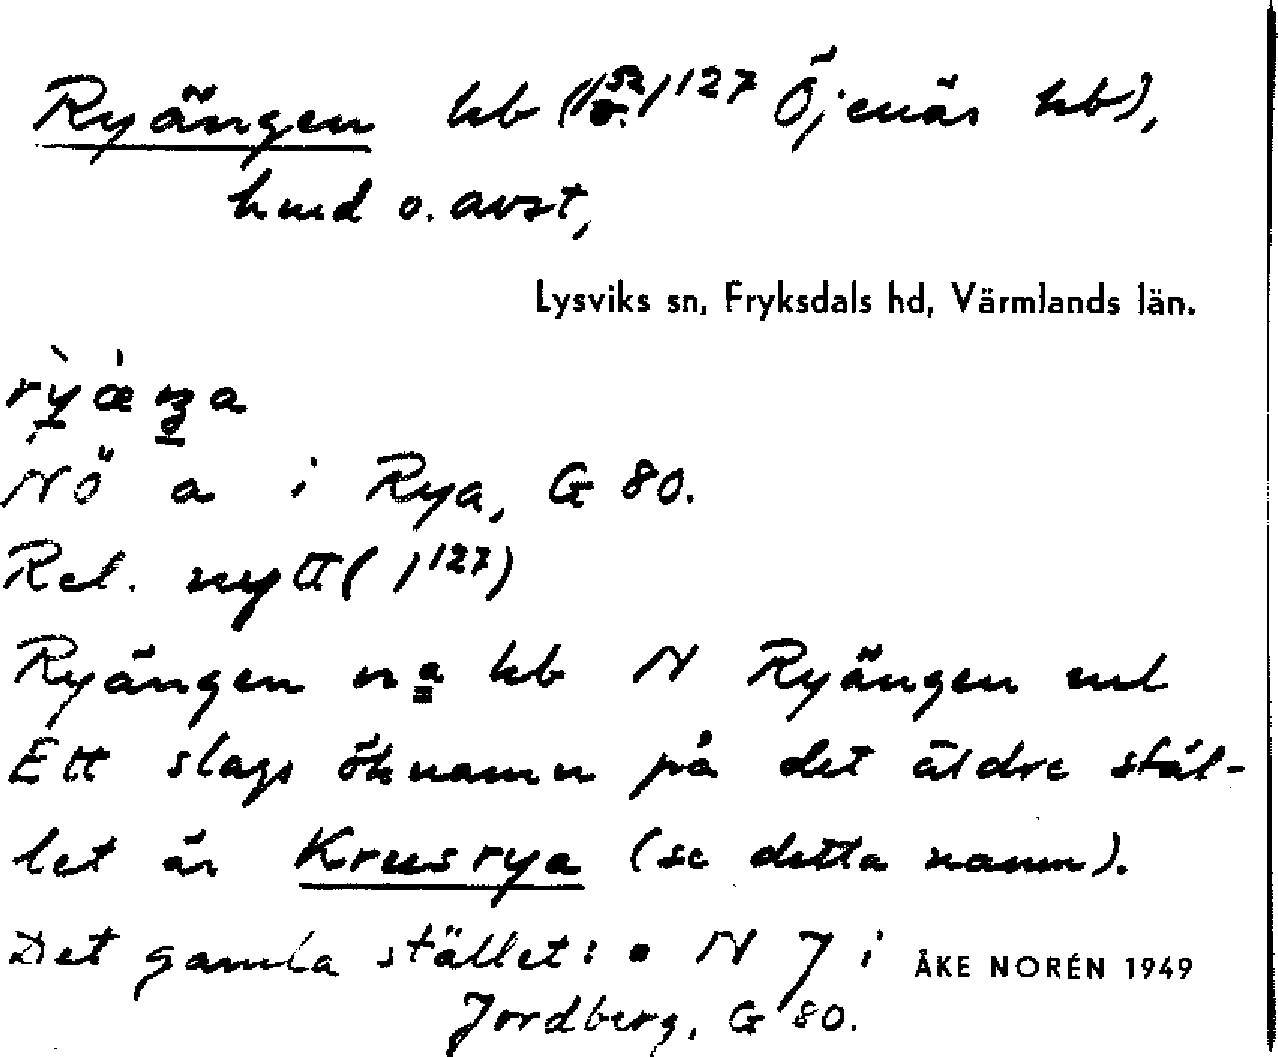 Ryängen hb (1⁵² o. 1¹²⁷ Öjenäs hb),
hmd o. avst,
Lysviks sn, Fryksdals hd, Värmlands län.
rỳæ̇ŋa
NÖ a i Rya, G 80.
Rel. nytt (1¹²⁷)
Ryängen na hb N Ryängen
Ett slags öknamn på det äldre stäl-
let är Krusrya (se detta namn).
Det gamla stället: • N J i
Jordberg, G 80.
ÅKE NORÉN 1949